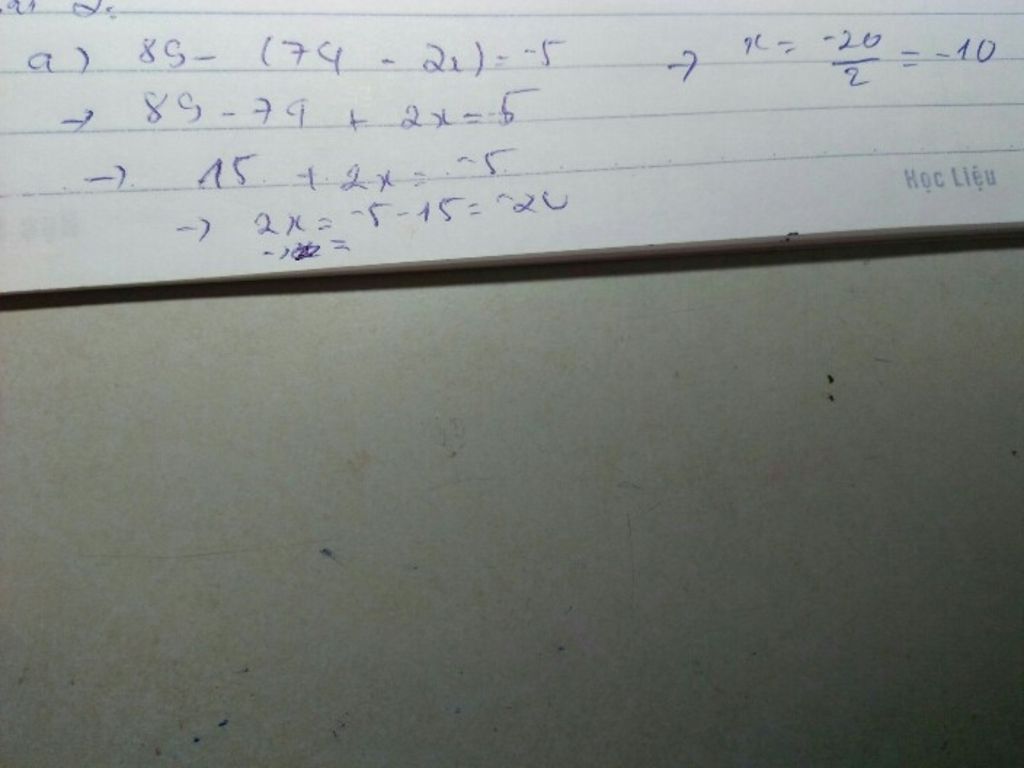 a) 89 - (74 - 2x) = -5
→ 89 - 74 + 2x = -5
→ 15 + 2x = -5
→ 2x = -5 - 15 = -20
→ x = -20/2 = -10
Học Liệu